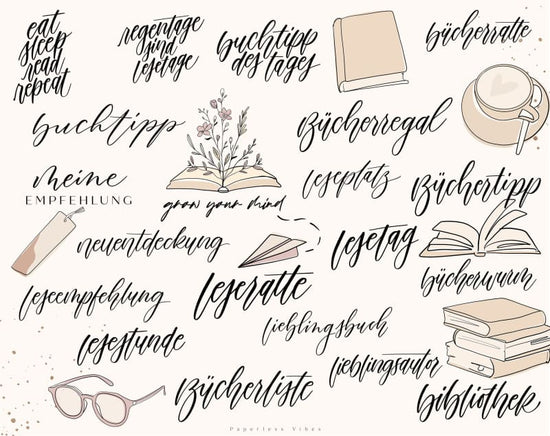 eat
sleep
read
repeat
regentage
sind
lesetage
buchtipp
des tages
bücherratte
buchtipp
Bücherregal
meine
EMPFEHLUNG
grow your mind
leseplatz
Büchertipp
neuentdeckung
lesetag
bücherwurm
leseempfehlung
leseratte
lieblingsbuch
lesestunde
lieblingsautor
Bücherliste
bibliothek
Paperless Vibes